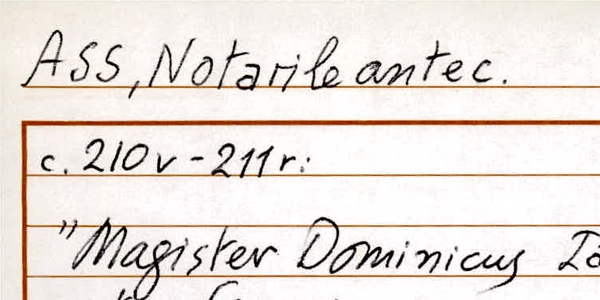 ASS, Notarile antec.
c. 210v - 211r:
"Magister Dominicus